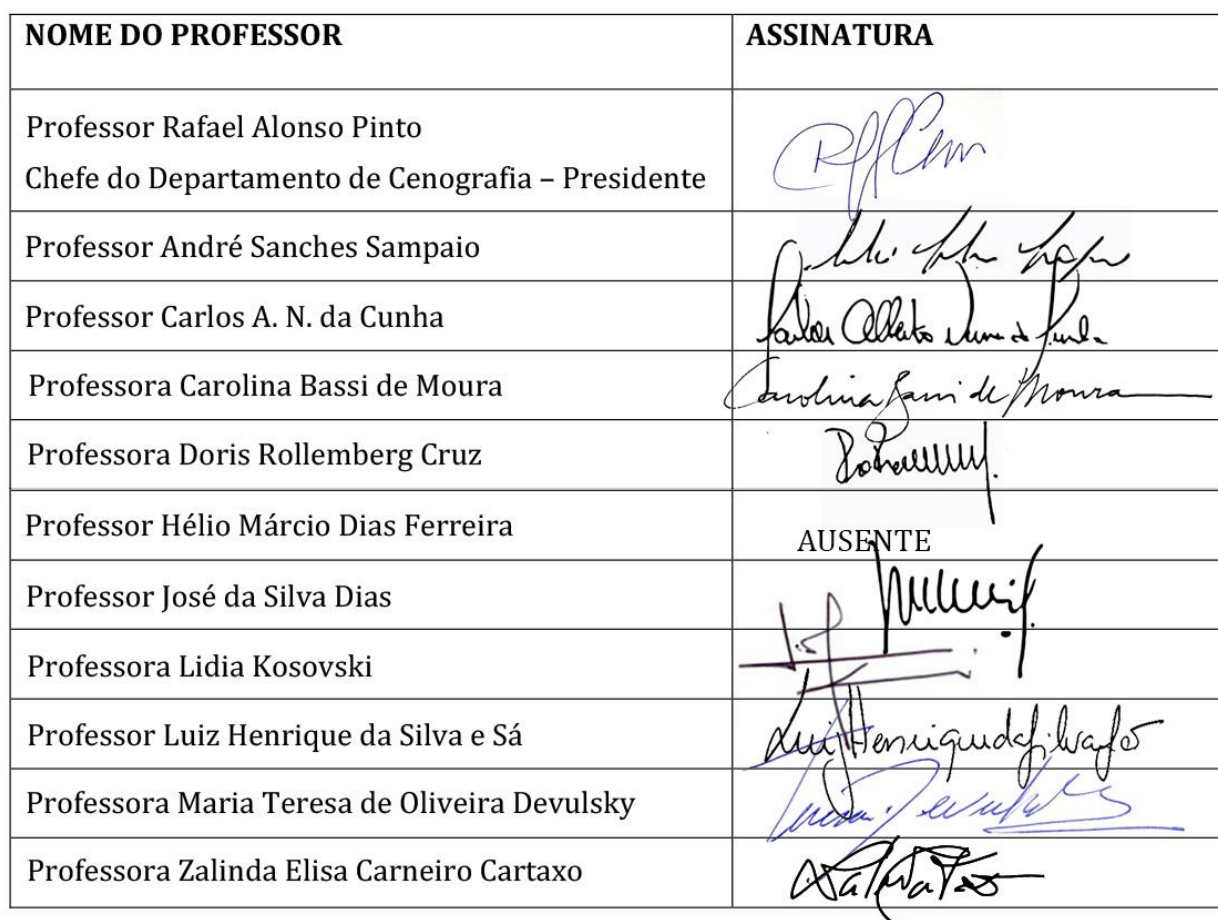 NOME DO PROFESSOR
ASSINATURA
Professor Rafael Alonso Pinto
Chefe do Departamento de Cenografia – Presidente
Professor André Sanches Sampaio
Professor Carlos A. N. da Cunha
Carlos Alberto Nunes da Cunha
Professora Carolina Bassi de Moura
Carolina Bassi de Moura
Professora Doris Rollemberg Cruz
Professor Hélio Márcio Dias Ferreira
AUSENTE
Professor José da Silva Dias
Professora Lidia Kosovski
Professor Luiz Henrique da Silva e Sá
Luiz Henrique da Silva e Sá
Professora Maria Teresa de Oliveira Devulsky
Professora Zalinda Elisa Carneiro Cartaxo